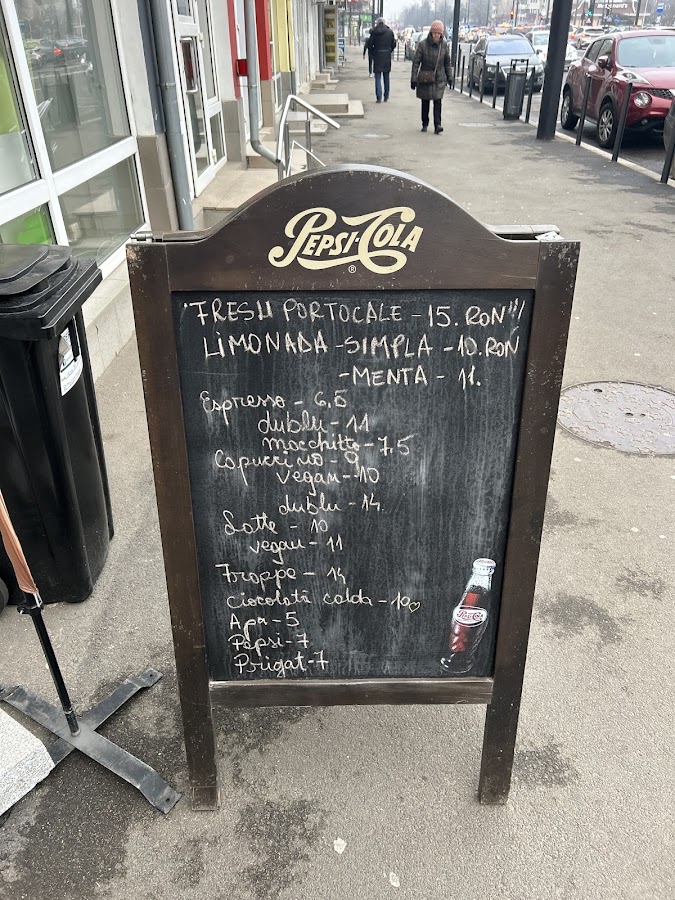 PEPSI-COLA
"FRESH PORTOCALE - 15. RON"
LIMONADA - SIMPLA - 10. RON
- MENTA - 11.
Espresso - 6,5
dublu - 11
macchitto - 7,5
Capuccino - 9
vegan - 10
dublu - 14.
Latte - 10
vegan - 11
Frappe - 14
ciocolată calda - 10
Apa - 5
Pepsi - 7
Prigat - 7
Pepsi-Cola